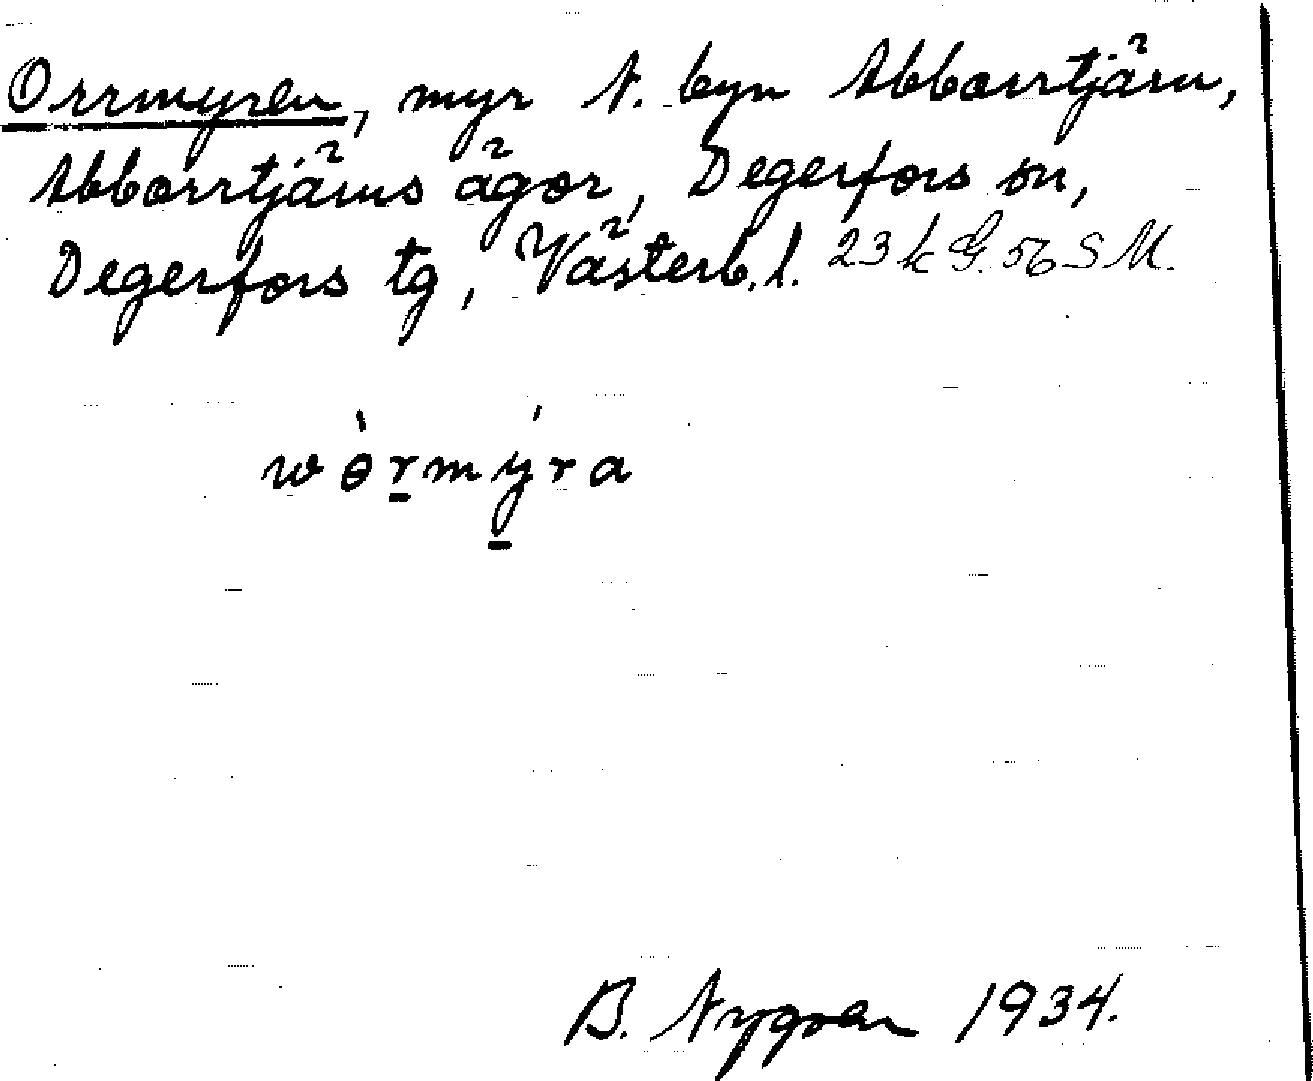 Orrmyren, myr N. byn Abborrtjärn,
Abborrtjärns ägor, Degerfors sn,
Degerfors tg, Västerb. l. 23 k G. 56 S M.
wòṟmý̱ra
B. Nygren 1934.